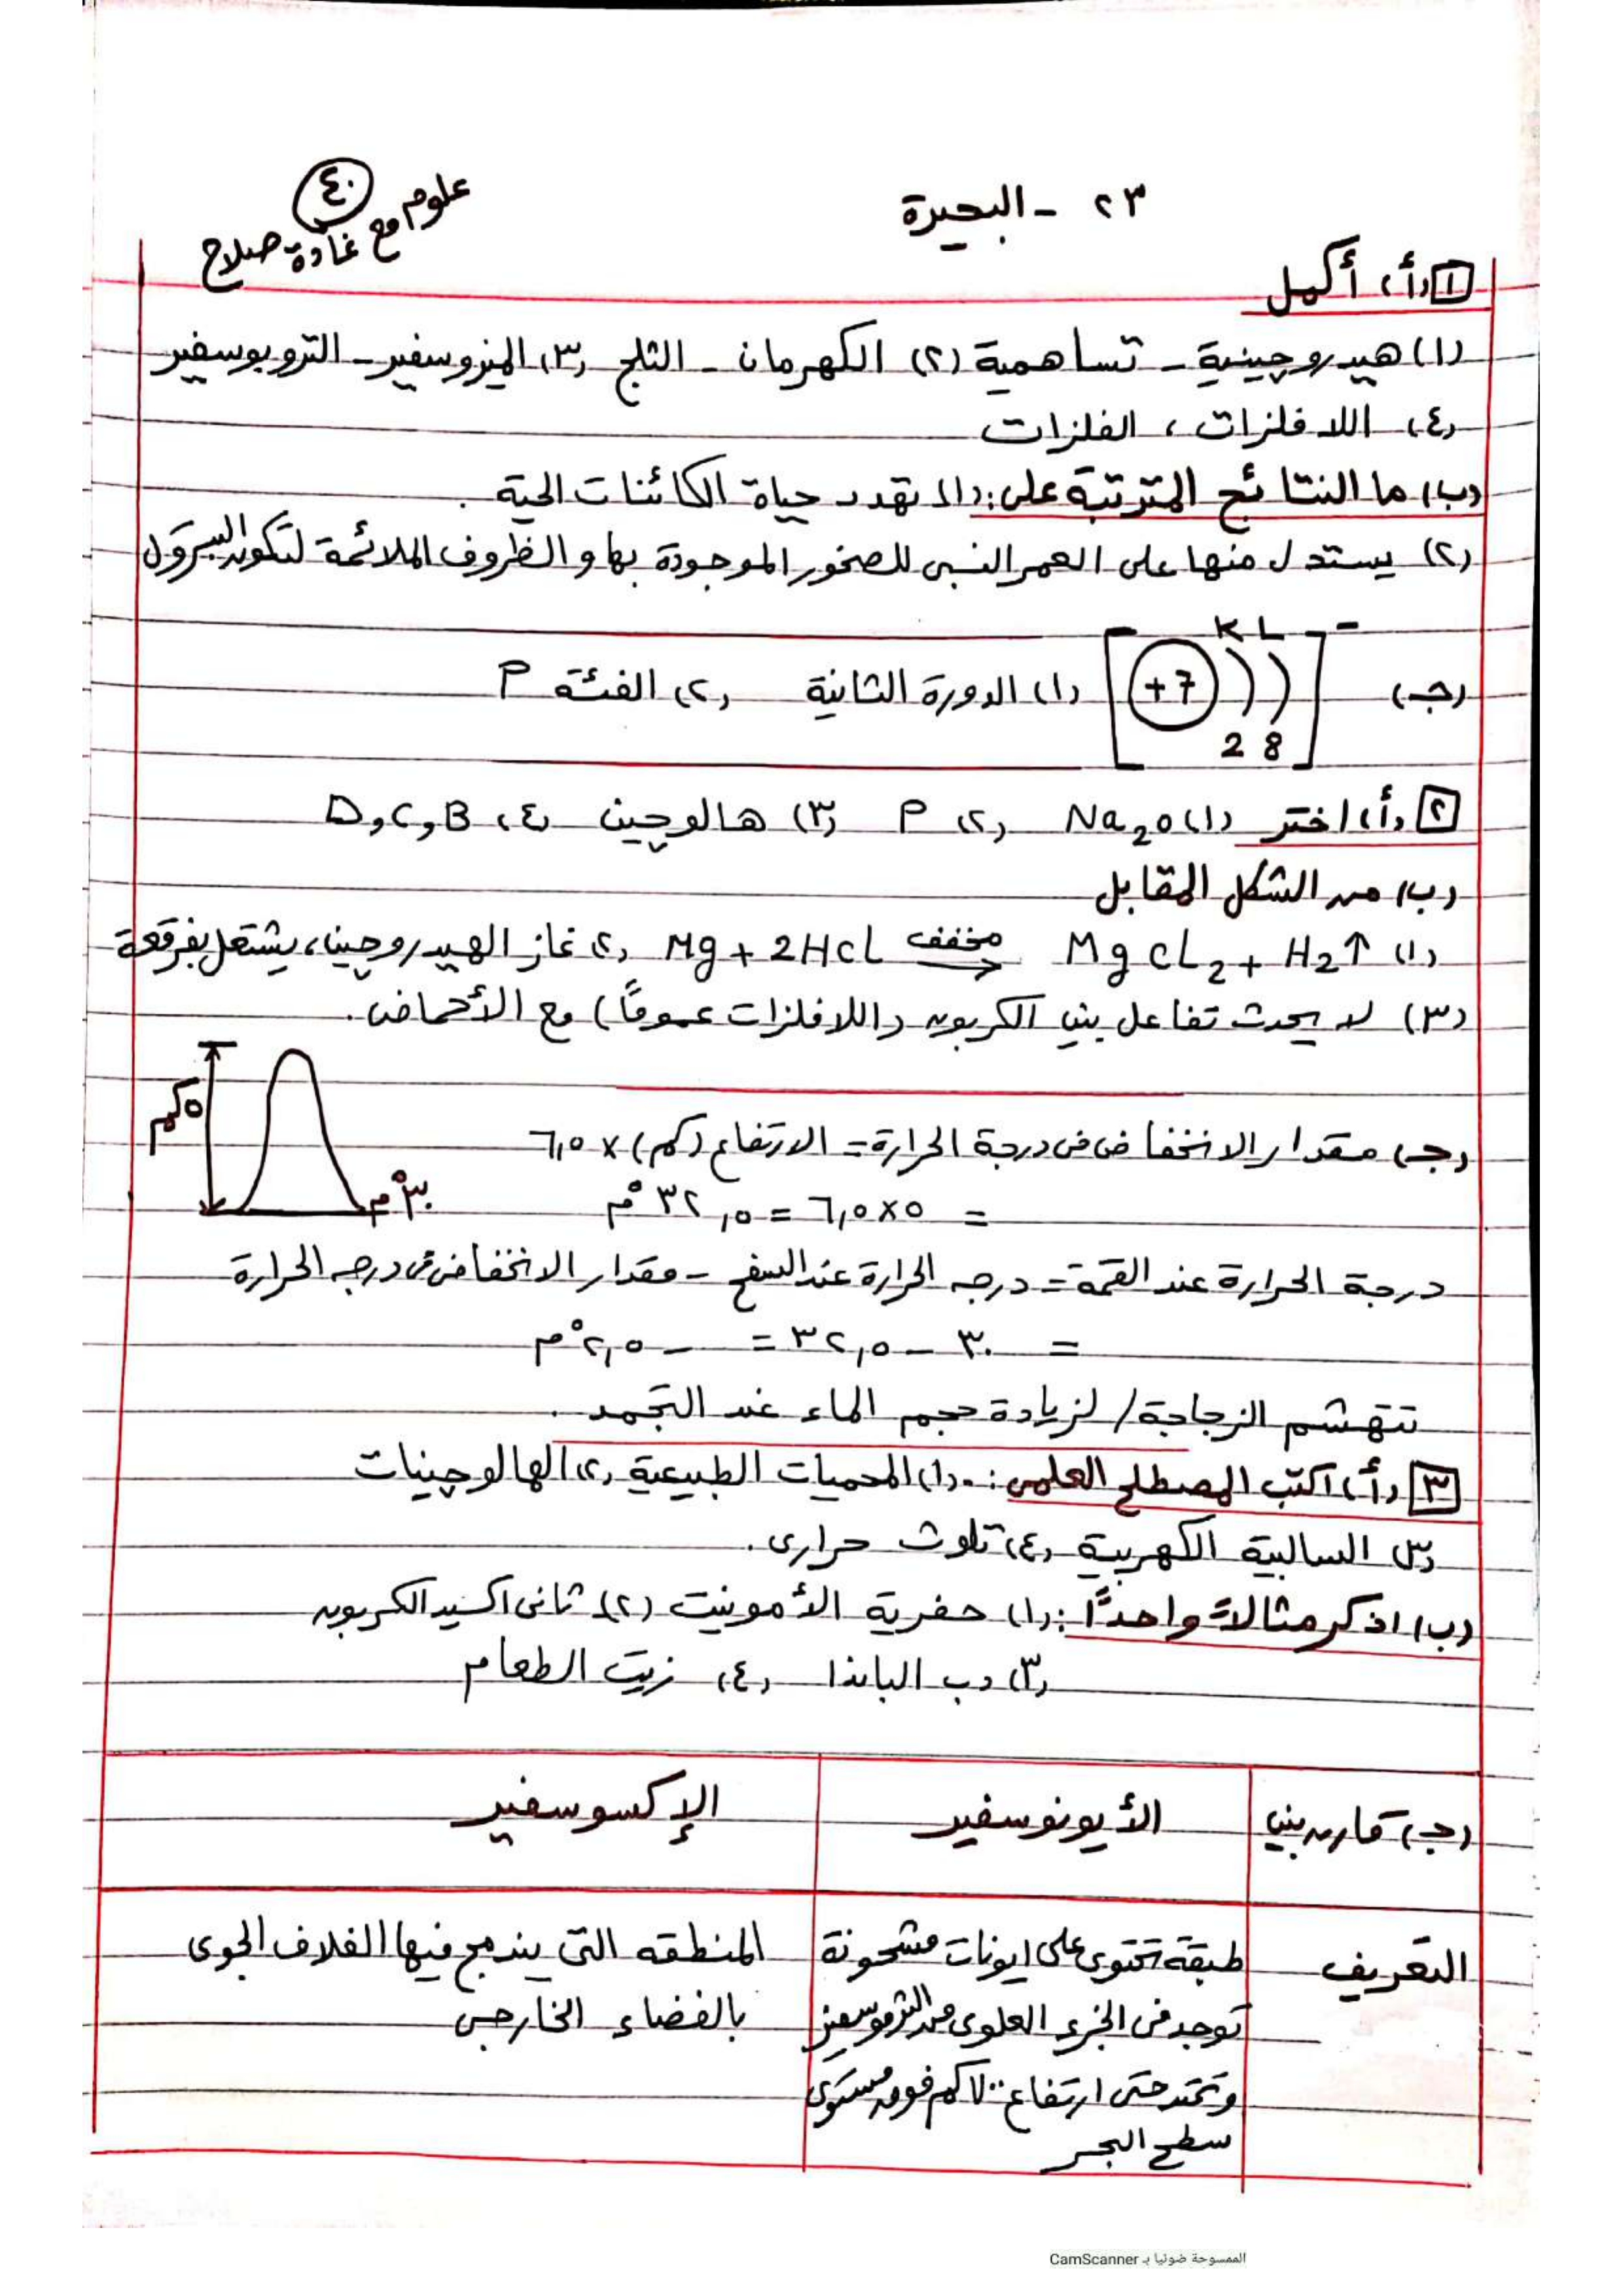 ٢٣ - البحيرة
٤٠
علوم مع غادة صلاح
١ (أ) أكمل
(١) هيدروچينية - تساهمية (٢) الكهرمان - الثلج (٣) الميزوسفير - التروبوسفير
(٤) اللافلزات ، الفلزات
(ب) ما النتائج المترتبة على: (١) تهدد حياة الكائنات الحية .
(٢) يستدل منها على العمر النسبى للصخور الموجودة بها و الظروف الملائمة لتكون البترول
K L
(جـ) [+7]⁻ (١) الدورة الثانية (٢) الفئة P
2 8
٢ (أ) اختر (١) Na₂O (٢) P (٣) هالوچين (٤) D , C , B
(ب) من الشكل المقابل
(١) Mg + 2HCl مخفف → MgCl₂ + H₂↑ (٢) غاز الهيدروچين ، يشتعل بفرقعة
(٣) لا يحدث تفاعل بين الكربون (اللافلزات عموماً) مع الأحماض .
٥ كم
(جـ) مقدار الانخفاض فى درجة الحرارة = الارتفاع (كم) × ٦,٥
٣٠°م
= ٥ × ٦,٥ = ٣٢,٥ °م
درجة الحرارة عند القمة = درجه الحرارة عند السفح - مقدار الانخفاض فى درجه الحرارة
= ٣٠ - ٣٢,٥ = - ٢,٥ °م
تتهشم الزجاجة / لزيادة حجم الماء عند التجمد .
٣ (أ) اكتب المصطلح العلمى : - (١) المحميات الطبيعية (٢) الهالوچينات
(٣) السالبية الكهربية (٤) تلوث حرارى .
(ب) اذكر مثالاً واحداً : (١) حفرية الأمونيت (٢) ثانى اكسيد الكربون
(٣) دب الباندا (٤) زيت الطعام
(جـ) قارن بين الأيونوسفير الإكسوسفير
التعريف طبقة تحتوى على ايونات مشحونة المنطقه التى يندمج فيها الغلاف الجوى
توجد فى الجزء العلوى من الثرموسفير بالفضاء الخارجى
وتمتد حتى ارتفاع ٧٠٠ كم فوق مستوى
سطح البحر
الممسوحة ضوئيا بـ CamScanner